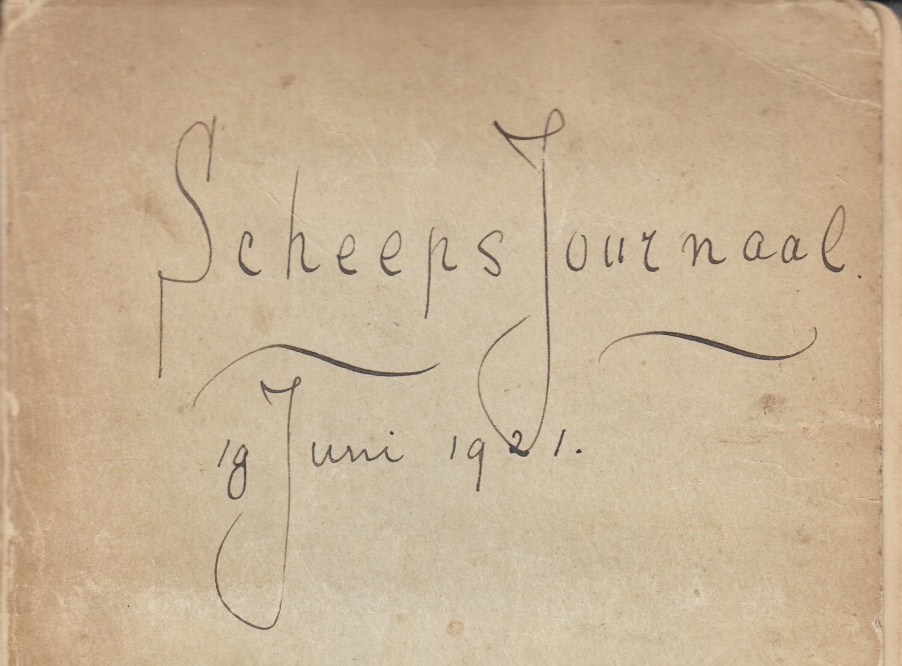 Scheeps Journaal.
18 Juni 1921.